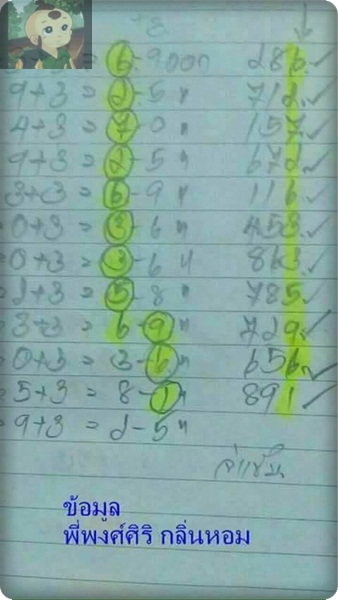 +3
3+3 = 6-9 ออก 286 ✓
9+3 = 2-5 " 712 ✓
4+3 = 7-0 " 157 ✓
9+3 = 2-5 " 672 ✓
3+3 = 6-9 " 116 ✓
0+3 = 3-6 " 453 ✓
0+3 = 3-6 " 863 ✓
2+3 = 5-8 " 785 ✓
3+3 = 6-9 " 729 ✓
0+3 = 3-6 " 656 ✓
5+3 = 8-1 " 891 ✓
9+3 = 2-5 "
ข้อมูล
พี่พงศ์ศิริ กลิ่นหอม